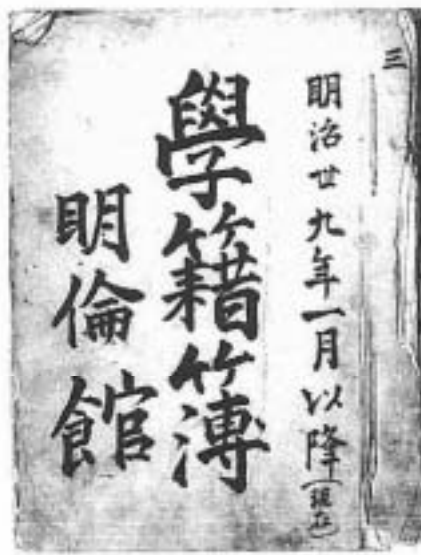 三
明治廿九年一月以降(現在)
學籍簿
明倫館